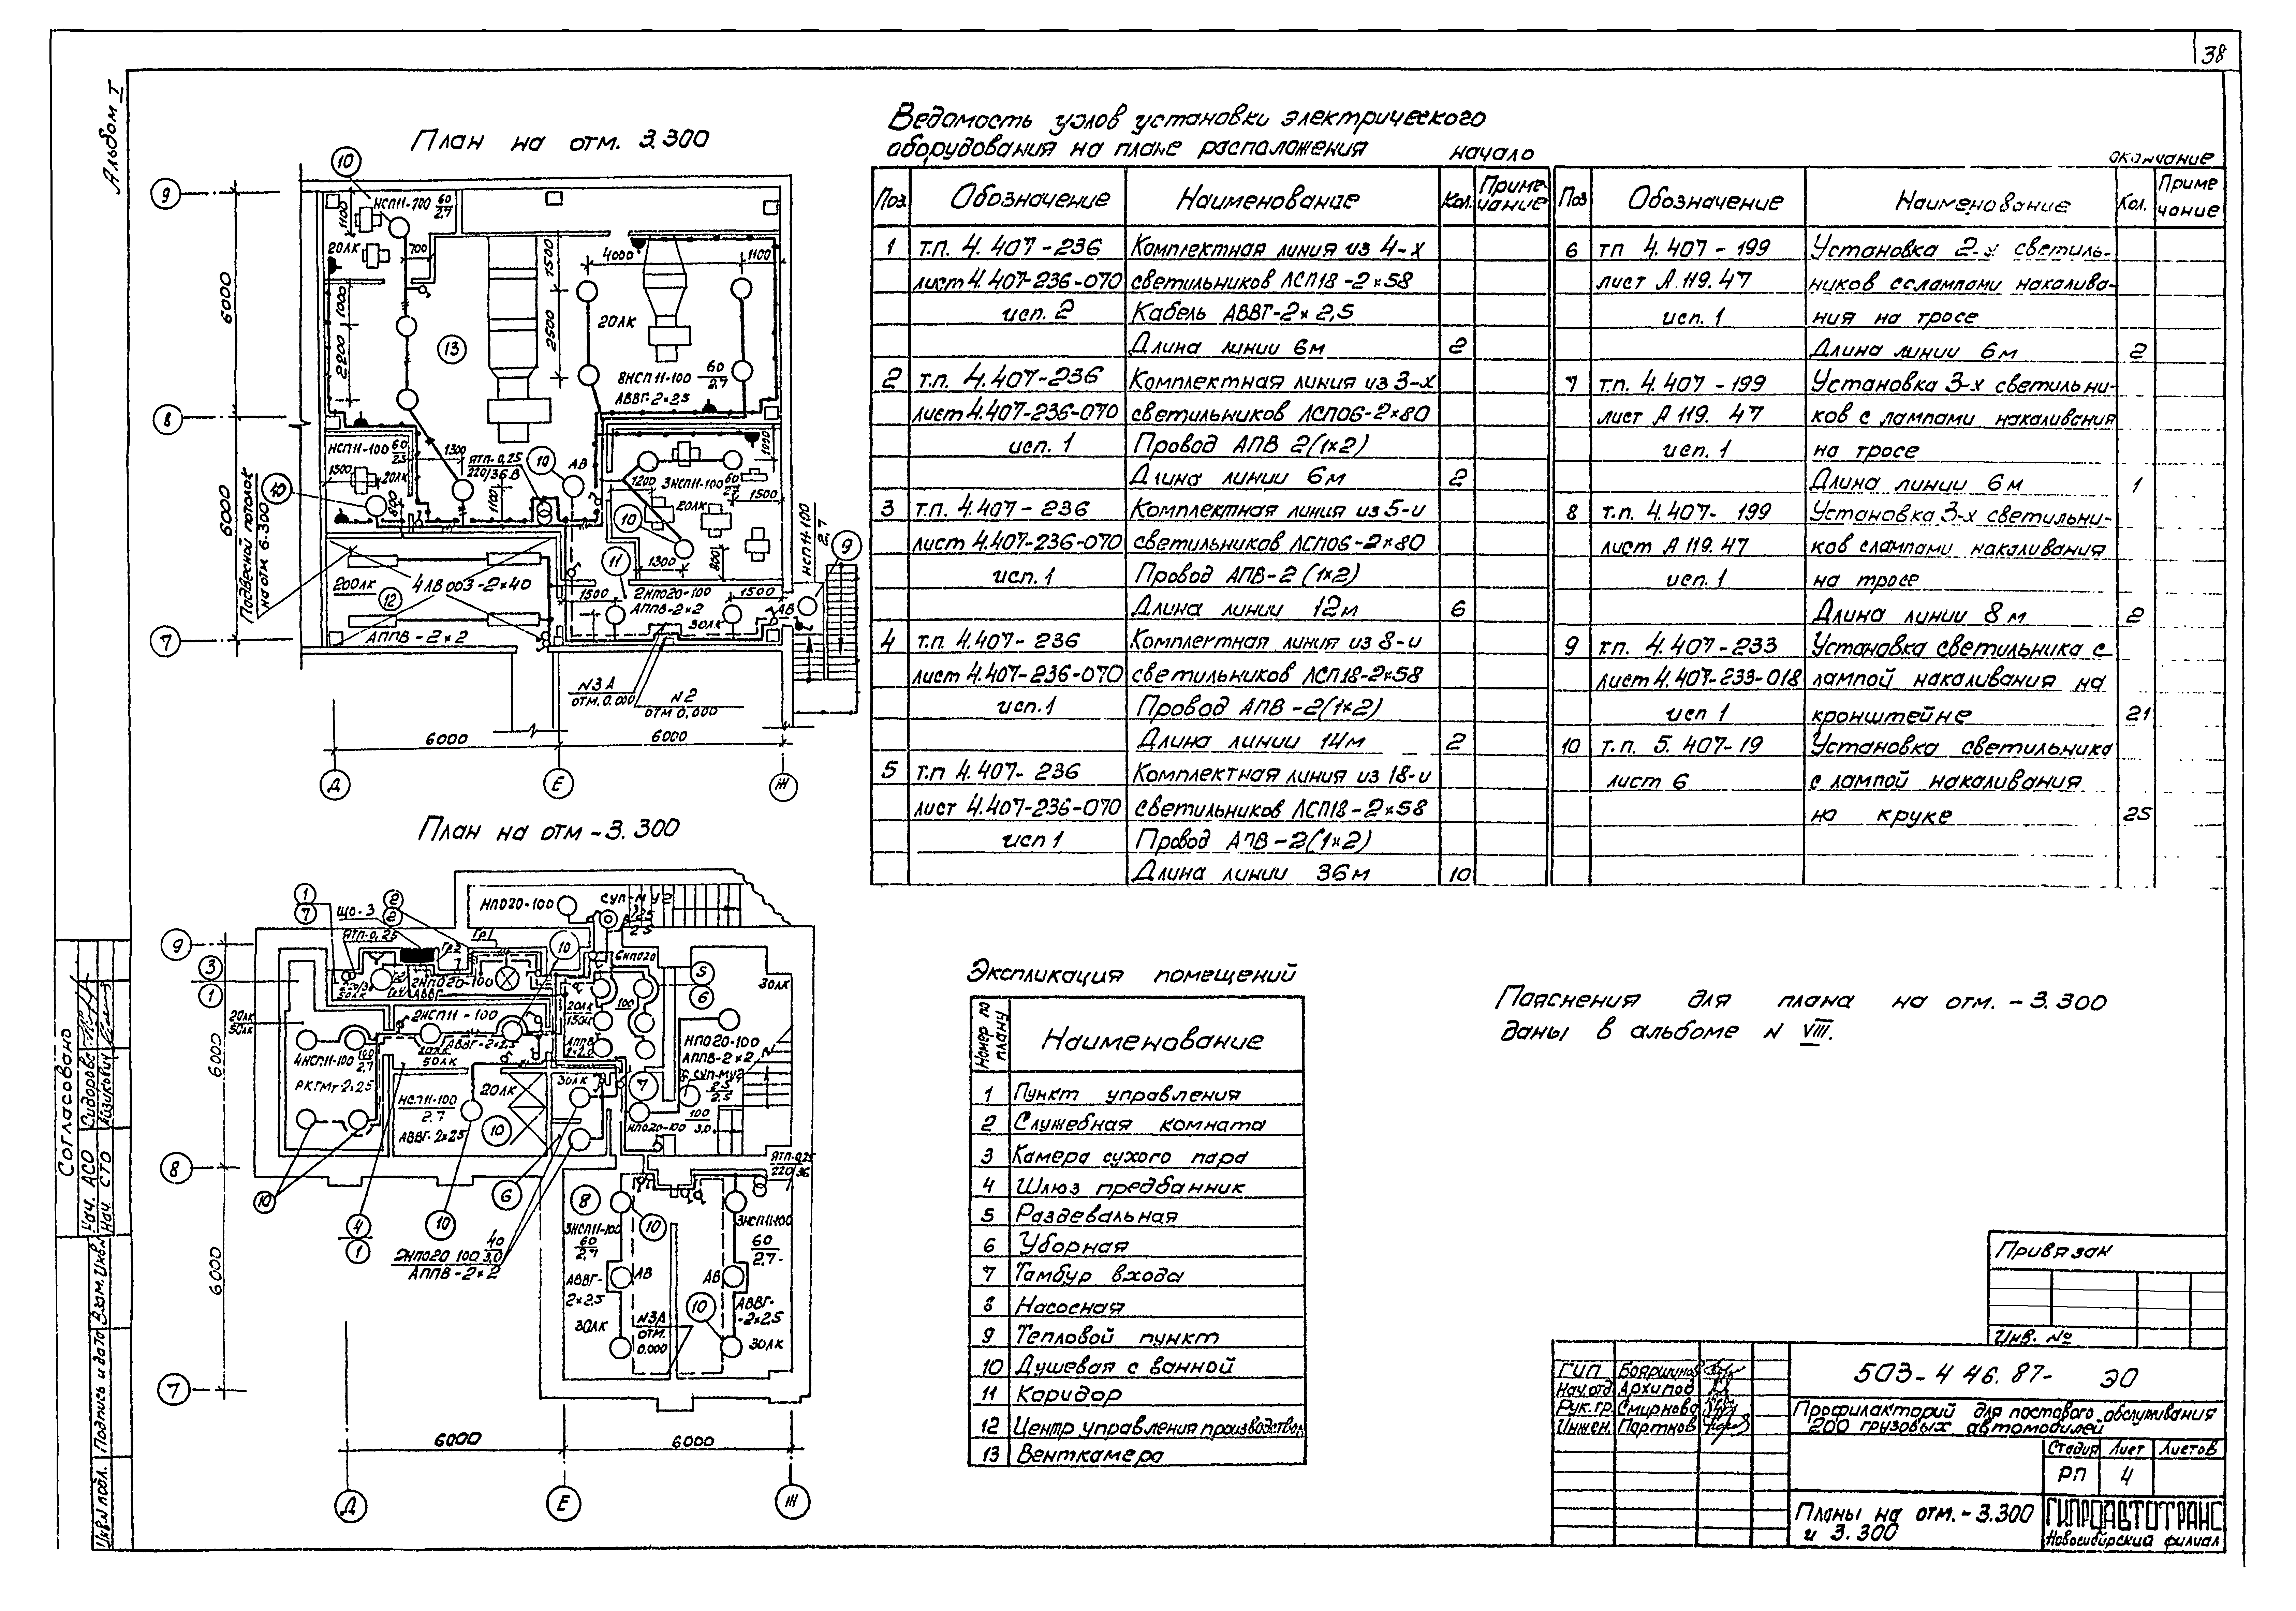 38
Альбом I
План на отм. 3.300
10
9
НСП11-200 60/2,7
1100
20ЛК
700
1500
4000
1100
6000
1000
2200
13
2500
20ЛК
8НСП11-100 60/2,7
АВВГ-2×2,5
8
НСП11-100 60/2,5
1300
ЯТП-0,25
220/36В
10
АВ
1000
1500
20ЛК
800
1100
1200
3НСП11-100 60/2,7
20ЛК
1500
6000
Подвесной потолок
на отм 6.300
10
10
11
1300
800
НСП11-100
2,7
9
200ЛК
4ЛВ003-2×40
12
1500
2НПО20-100
АППВ-2×2
1500
30ЛК
АВ
7
АППВ-2×2
N3А
отм. 0.000
N2
отм 0.000
6000
6000
Д
Е
Ж
План на отм -3.300
1
7
ЩО-3
2
2
ЯТП-0,25
Гр1
НПО20-100
СУП-МУ2
10
9
3
1
6НПО20
5
6
30ЛК
50ЛК
2НПО20-100
АВВГ
20ЛК
150Ц
100
20ЛК
50ЛК
2НСП11-100
АВВГ-2×2,5
50ЛК
4НСП11-100 100/2,7
РКГМт-2×2,5
АППВ
2×2,2
НПО20-100
АППВ-2×2
СУП-МУ2
25/2,5
6000
НСП11-100
2,7
20ЛК
10
30ЛК
7
100
3,0
НПО20-100
АВВГ-2×2,5
8
ЯТП-0,25
220/36
10
4
1
10
6
8
10
3НСП11-100
60
2,7
3НСП11-100
60
2,7
2НПО20 100 40/3,0
АППВ-2×2
АВВГ-
2×2,5
АВ
АВ
АВВГ-
-2×2,5
10
30ЛК
N3А
отм.
0.000
30ЛК
6000
7
6000
6000
Д
Е
Ж
Ведомость узлов установки электрического
оборудования на плане расположения
начало
Поз. Обозначение Наименование Кол. Приме-чание
1 т.п. 4.407-236 Комплектная линия из 4-х
лист 4.407-236-070 светильников ЛСП18-2×58
исп. 2 Кабель АВВГ-2×2,5
Длина линии 6м 2
2 т.п. 4.407-236 Комплектная линия из 3-х
лист 4.407-236-070 светильников ЛСП06-2×80
исп. 1 Провод АПВ 2(1×2)
Длина линии 6м 2
3 т.п. 4.407-236 Комплектная линия из 5-и
лист 4.407-236-070 светильников ЛСП06-2×80
исп. 1 Провод АПВ-2(1×2)
Длина линии 12м 6
4 т.п. 4.407-236 Комплектная линия из 8-и
лист 4.407-236-070 светильников ЛСП18-2×58
исп. 1 Провод АПВ-2(1×2)
Длина линии 14м 2
5 т.п 4.407-236 Комплектная линия из 18-и
лист 4.407-236-070 светильников ЛСП18-2×58
исп 1 Провод АПВ-2(1×2)
Длина линии 36м 10
окончание
Поз Обозначение Наименование Кол. Приме чание
6 тп 4.407-199 Установка 2-х светиль-
лист А 119.47 ников с лампами накалива-
исп. 1 ния на тросе
Длина линии 6м 2
7 т.п. 4.407-199 Установка 3-х светильни-
лист А 119.47 ков с лампами накаливания
исп. 1 на тросе
Длина линии 6м 1
8 т.п. 4.407-199 Установка 3-х светильни-
лист А 119.47 ков с лампами накаливания
исп. 1 на тросе
Длина линии 8м 2
9 т.п. 4.407-233 Установка светильника с
лист 4.407-233-018 лампой накаливания на
исп 1 кронштейне 21
10 т.п. 5.407-19 Установка светильника
лист 6 с лампой накаливания
на крюке 25
Экспликация помещений
Номер по плану Наименование
1 Пункт управления
2 Служебная комната
3 Камера сухого пара
4 Шлюз предбанник
5 Раздевальная
6 Уборная
7 Тамбур входа
8 Насосная
9 Тепловой пункт
10 Душевая с ванной
11 Коридор
12 Центр управления производством
13 Венткамера
Пояснения для плана на отм. -3.300
даны в альбоме N VIII.
Привязан
Инв. №
ГИП Бояршинов
Нач.отд. Архипов
Рук.гр. Смирнова
Инжен. Портнов
503-4 46.87- ЭО
Профилакторий для постового обслуживания
200 грузовых автомобилей
Стадия Лист Листов
РП 4
Планы на отм. -3.300
и 3.300
ГИПРОАВТОТРАНС
Новосибирский филиал
Согласовано
Нач. АСО Сидорова
Нач. СТО
Взам. Инв N
Подпись и дата
Инв.N подл.